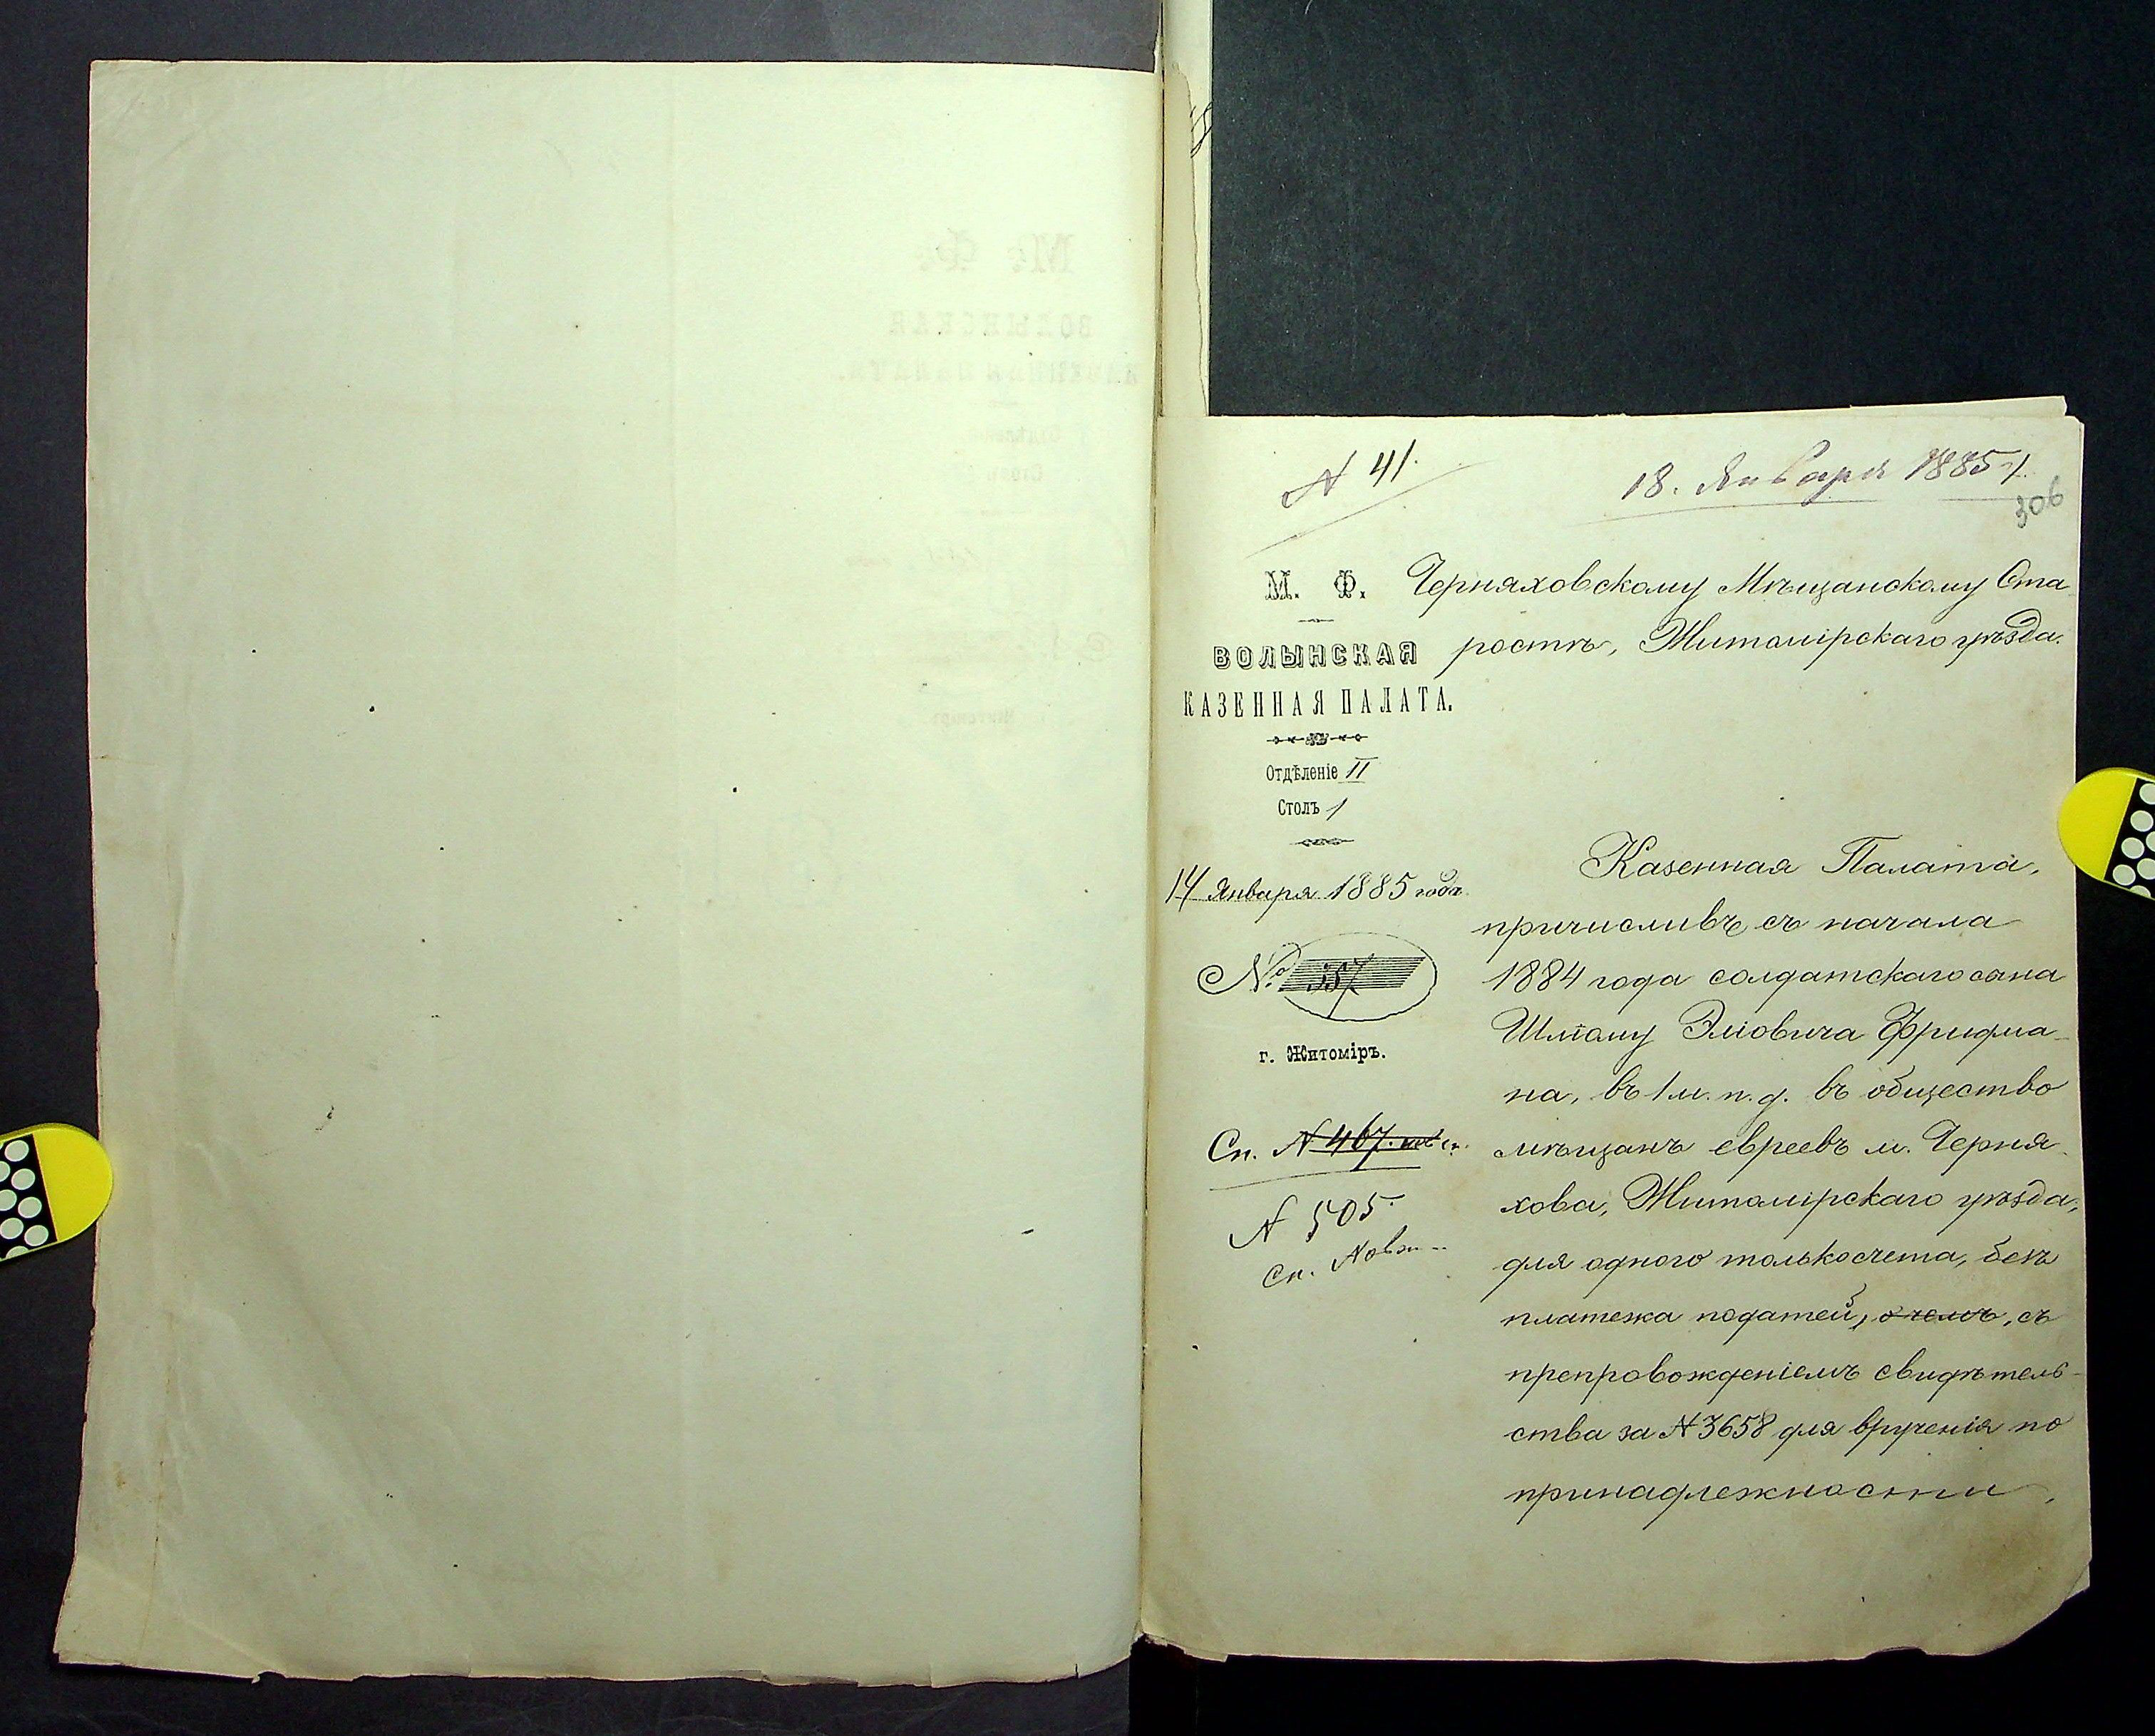 N 41.
18. Января 1885 г.
306
М. Ф.
ВОЛЫНСКАЯ
КАЗЕННАЯ ПАЛАТА.
Отдѣленіе II
Столъ 1
14 Января 1885 года
№ 357
г. Житоміръ.
Сп. N 467.
N 505.
Сп.
Черняховскому Мѣщанскому Ста
ростѣ, Житомірскаго уѣзда.
Казенная Палата,
причисливъ съ начала
1884 года солдатскаго сына
Шлёму Эліовича Фридма-
на, въ 1 м. п. д. въ общество
мѣщанъ евреевъ м. Черня-
хова, Житомірскаго уѣзда,
для одного только счета, безъ
платежа податей, о чемъ, съ
препровожденіемъ свидѣтель-
ства за N 3658 для врученія по
принадлежности,